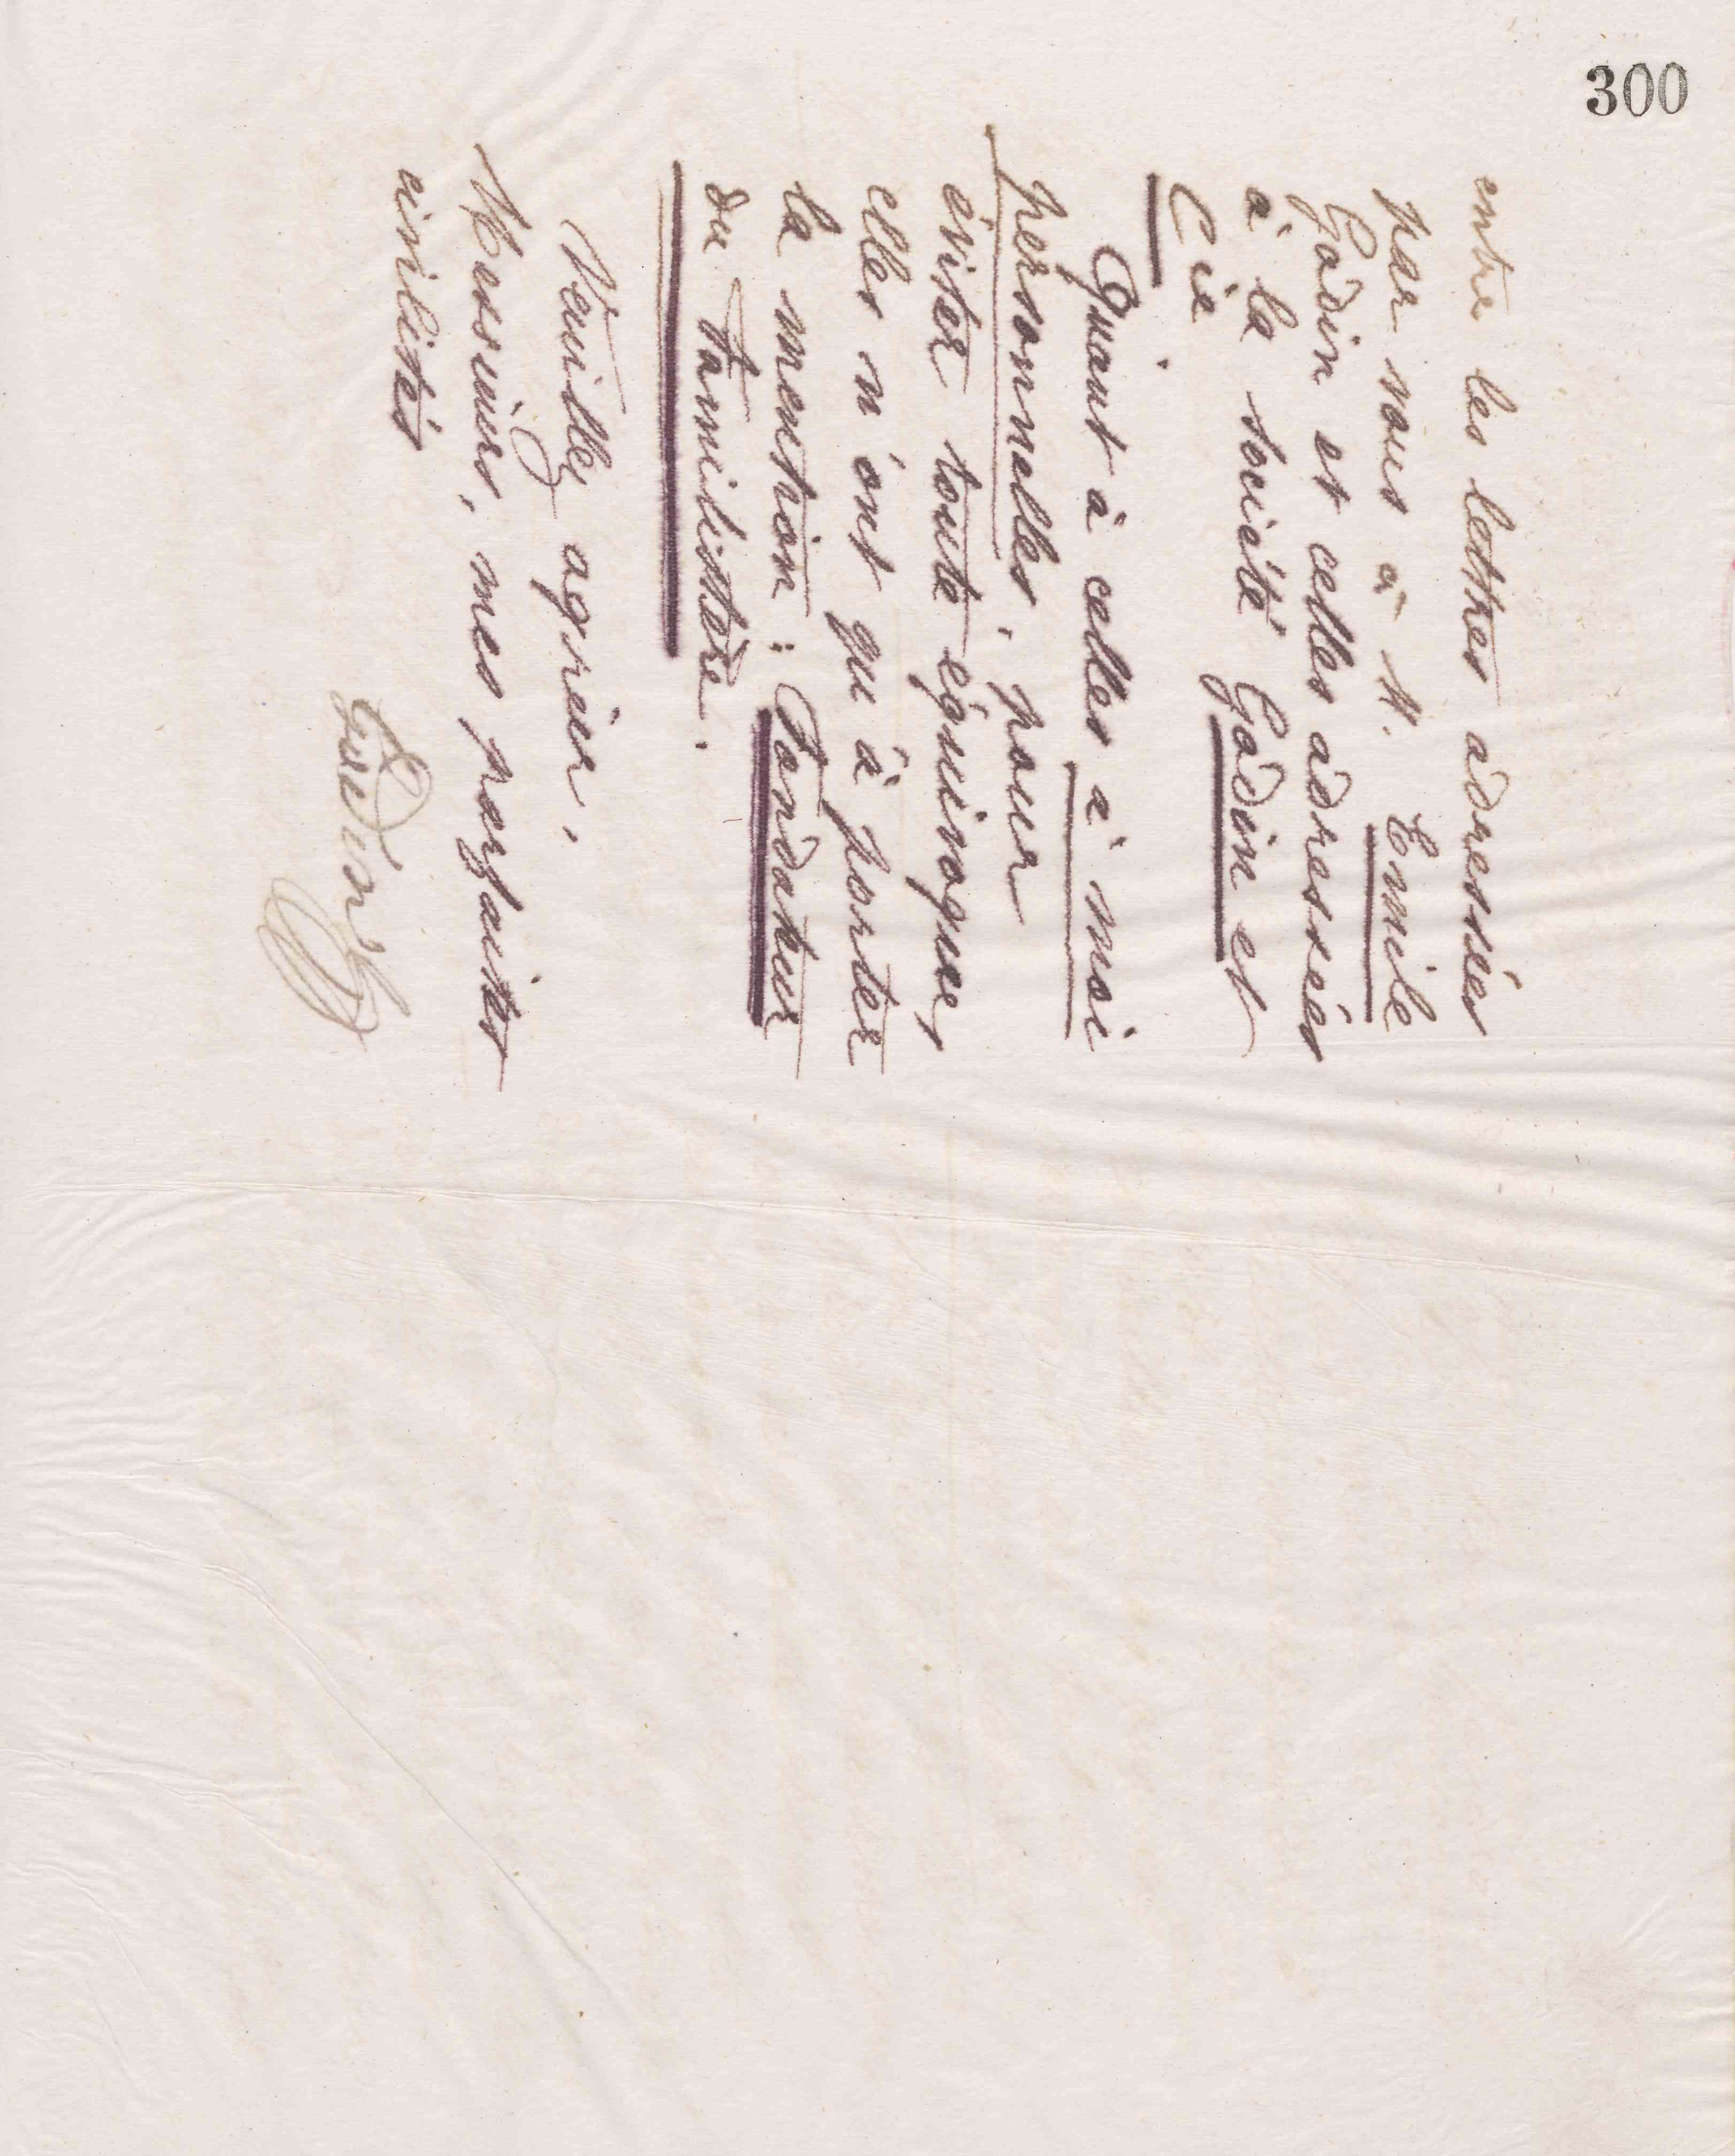 300
entre les lettres adressées
par vous à M. Emile
Godin et celles adressées
à la société Godin et
Cie
Quant à celles à moi
personnelles, pour
éviter toute équivoque,
elles n'ont qu'à porter
la mention : Fondateur
du Familistère.
Veuillez agréer,
Messieurs, mes parfaites
civilités
Godin